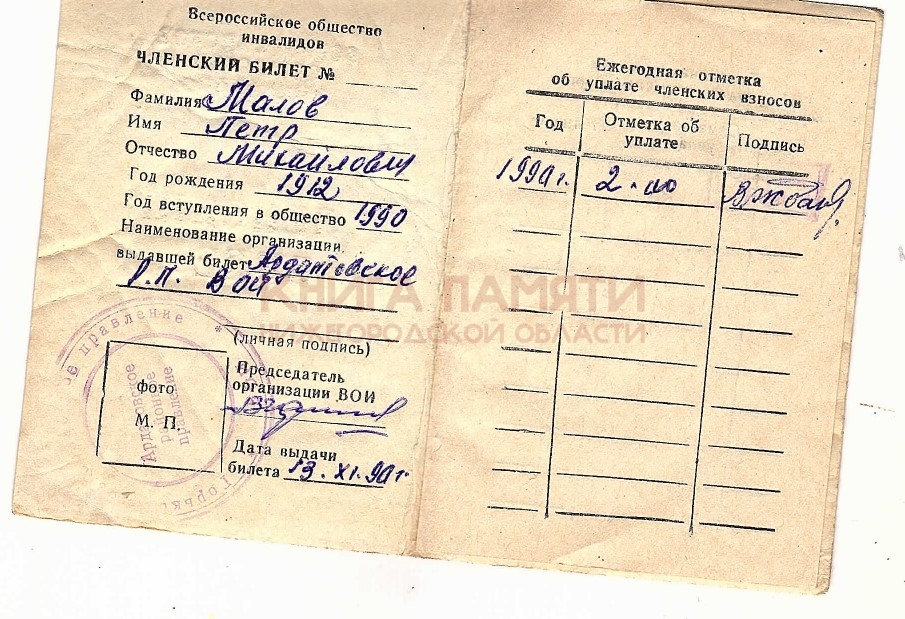 Всероссийское общество
инвалидов
ЧЛЕНСКИЙ БИЛЕТ №
Фамилия Малов
Имя Петр
Отчество Михайлович
Год рождения 1912
Год вступления в общество 1990
Наименование организации,
выдавшей билет Ардатовское
Р.П. ВОИ
(личная подпись)
Председатель
организации ВОИ
Дата выдачи
билета 13.XI.90г
фото
М. П.
правление *
Ардатовское
районное
правление
Горьк
Ежегодная отметка
об уплате членских взносов
Год
Отметка об
уплате
Подпись
1990г. 2-00
КНИГА ПАМЯТИ
НИЖЕГОРОДСКОЙ ОБЛАСТИ